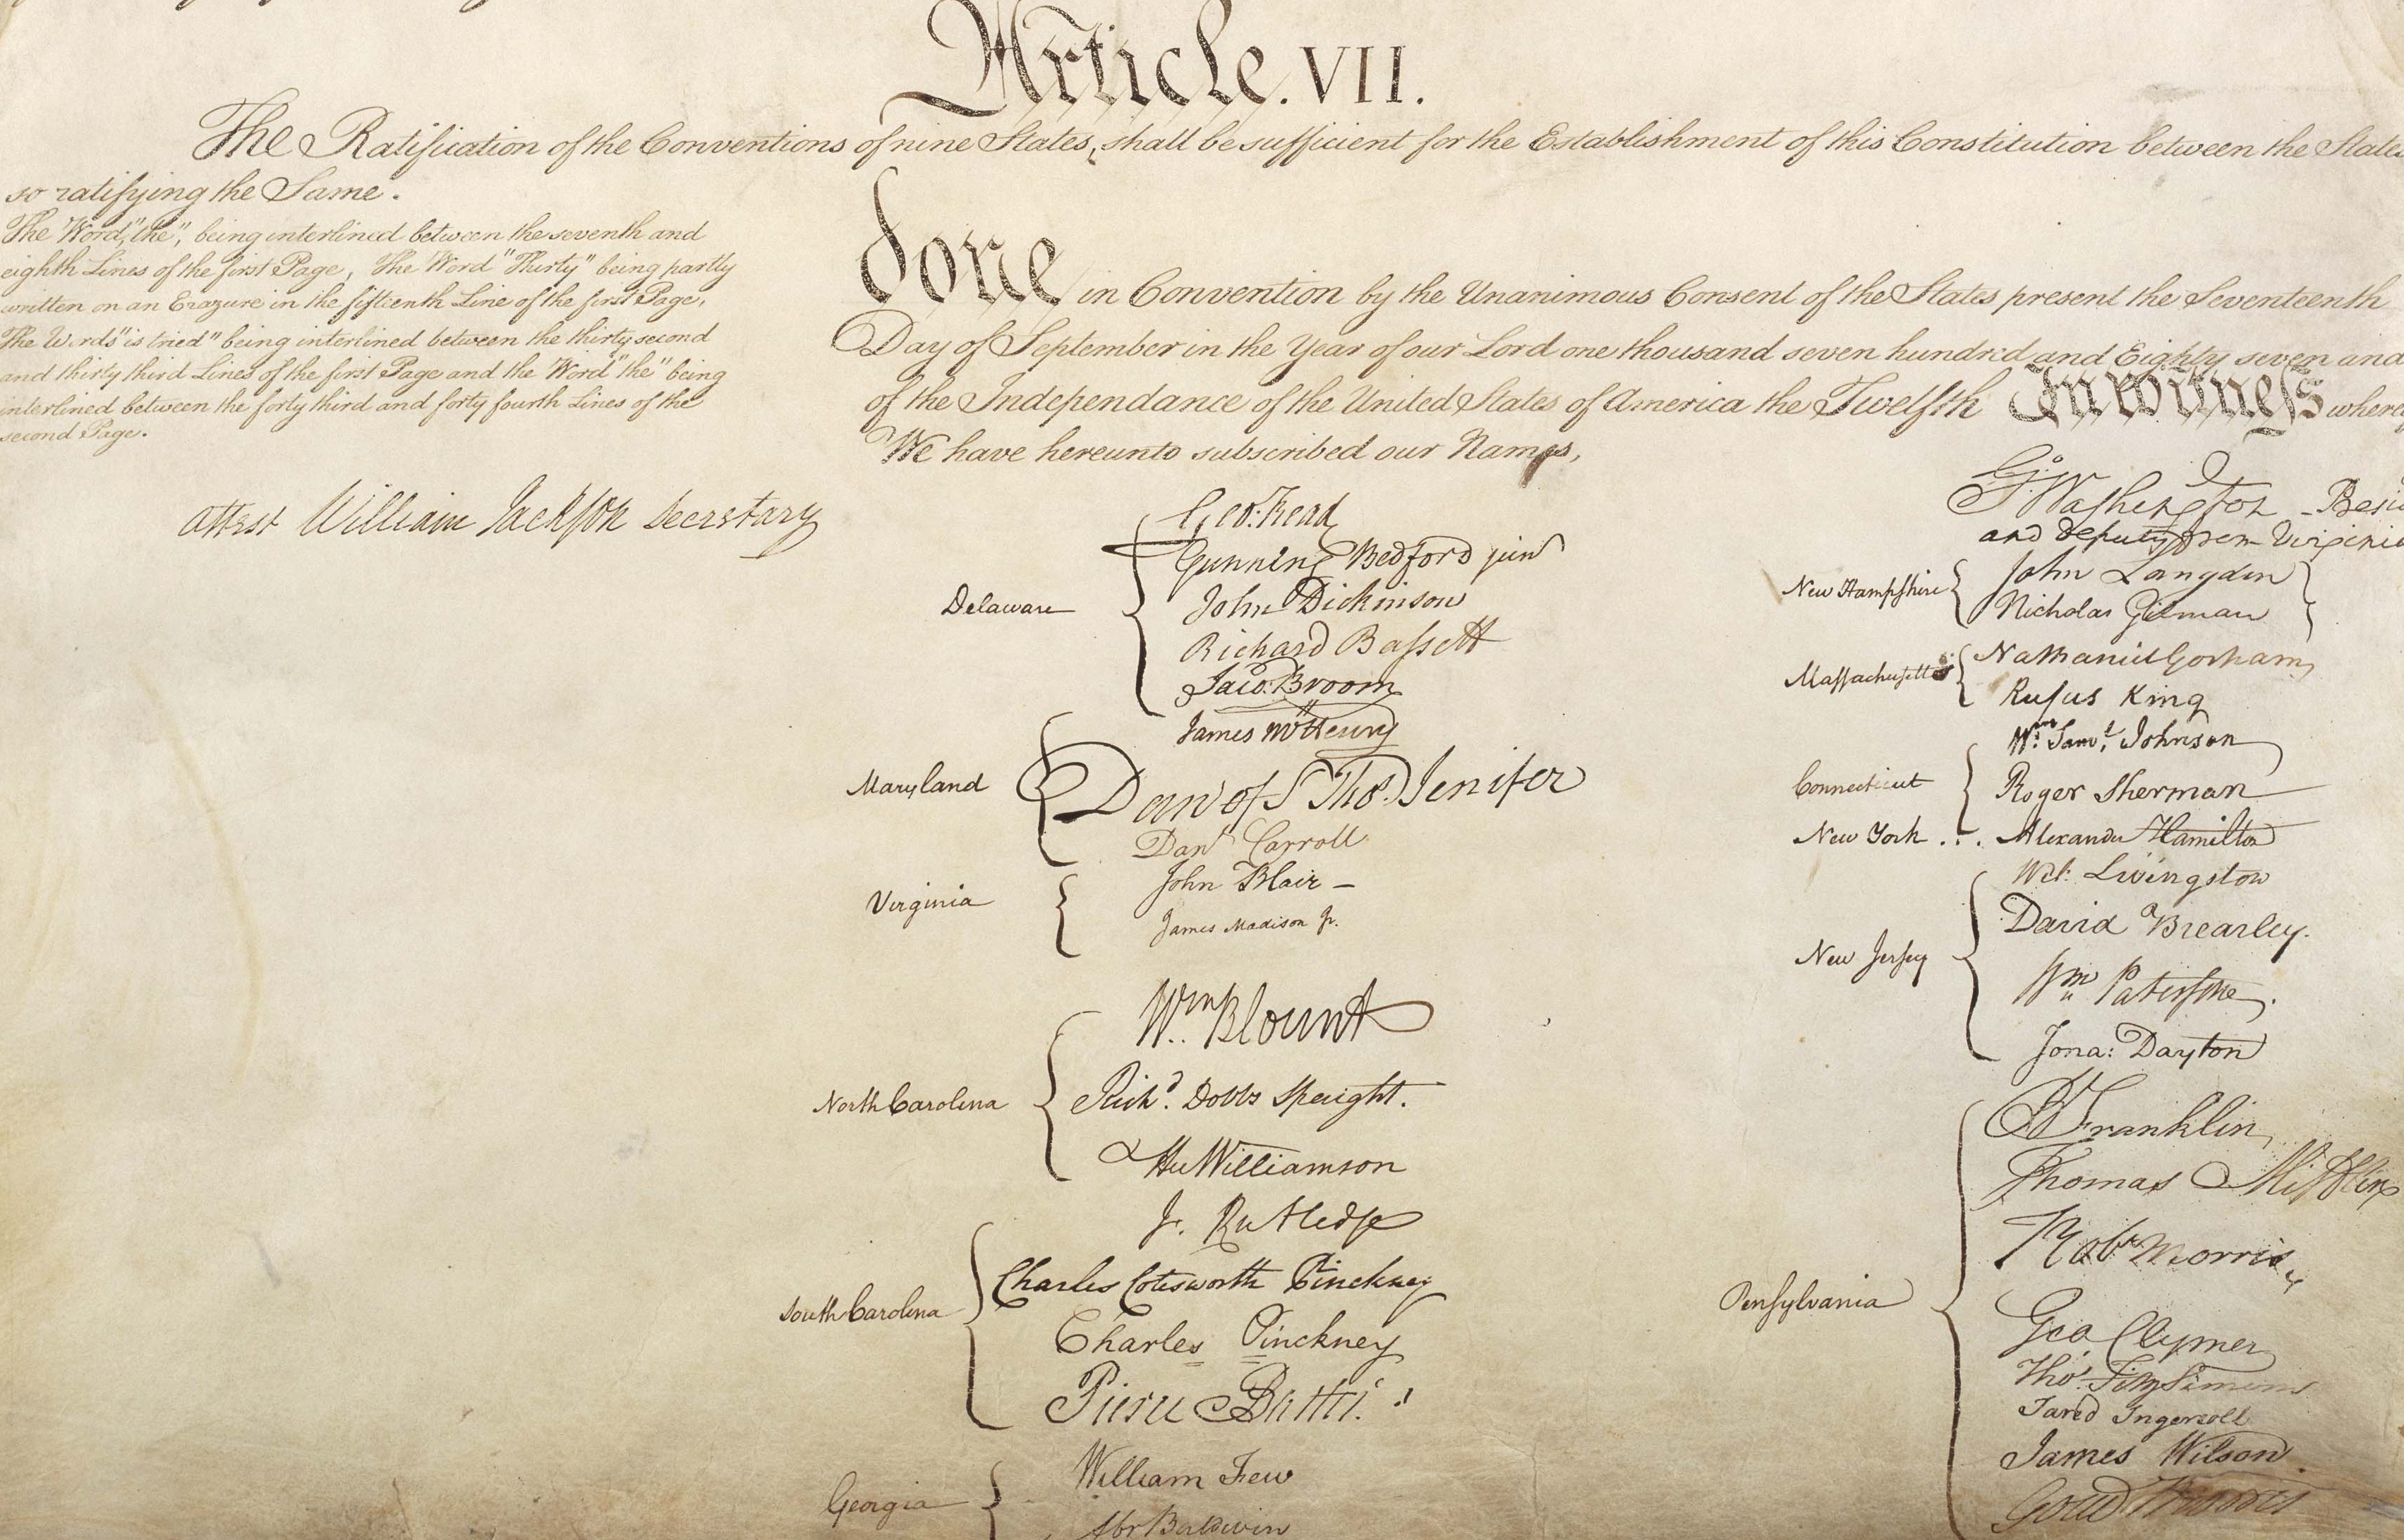 Article. VII.
The Ratification of the Conventions of nine States, shall be sufficient for the Establishment of this Constitution between the States
so ratifying the Same.
The Word, "the", being interlined between the seventh and
eighth Lines of the first Page, The Word "Thirty" being partly
written on an Erazure in the fifteenth Line of the first Page,
The Words "is tried" being interlined between the thirty second
and thirty third Lines of the first Page and the Word "the" being
interlined between the forty third and forty fourth Lines of the
second Page.
attest William Jackson Secretary
done in Convention by the Unanimous Consent of the States present the Seventeenth
Day of September in the Year of our Lord one thousand seven hundred and Eighty seven and
of the Independance of the United States of America the Twelfth In witness where
We have hereunto subscribed our Names,
Delaware
Geo: Read
Gunning Bedford jun
John Dickinson
Richard Bassett
Jaco: Broom
Maryland
James McHenry
Dan of St Thos. Jenifer
Danl Carroll
Virginia
John Blair —
James Madison Jr.
North Carolina
Wm. Blount
Richd. Dobbs Spaight.
Hu Williamson
South Carolina
J. Rutledge
Charles Cotesworth Pinckney
Charles Pinckney
Pierce Butler.
Georgia
William Few
Abr Baldwin
Go. Washington - Presid
and deputy from Virginia
New Hampshire
John Langdon
Nicholas Gilman
Massachusetts
Nathaniel Gorham
Rufus King
Connecticut
Wm. Saml. Johnson
Roger Sherman
New York . . .
Alexander Hamilton
New Jersey
Wil: Livingston
David Brearley.
Wm Paterson.
Jona: Dayton
Pensylvania
B Franklin
Thomas Mifflin
Robt Morris
Geo. Clymer
Thos. FitzSimons
Jared Ingersoll
James Wilson.
Gouv Morris